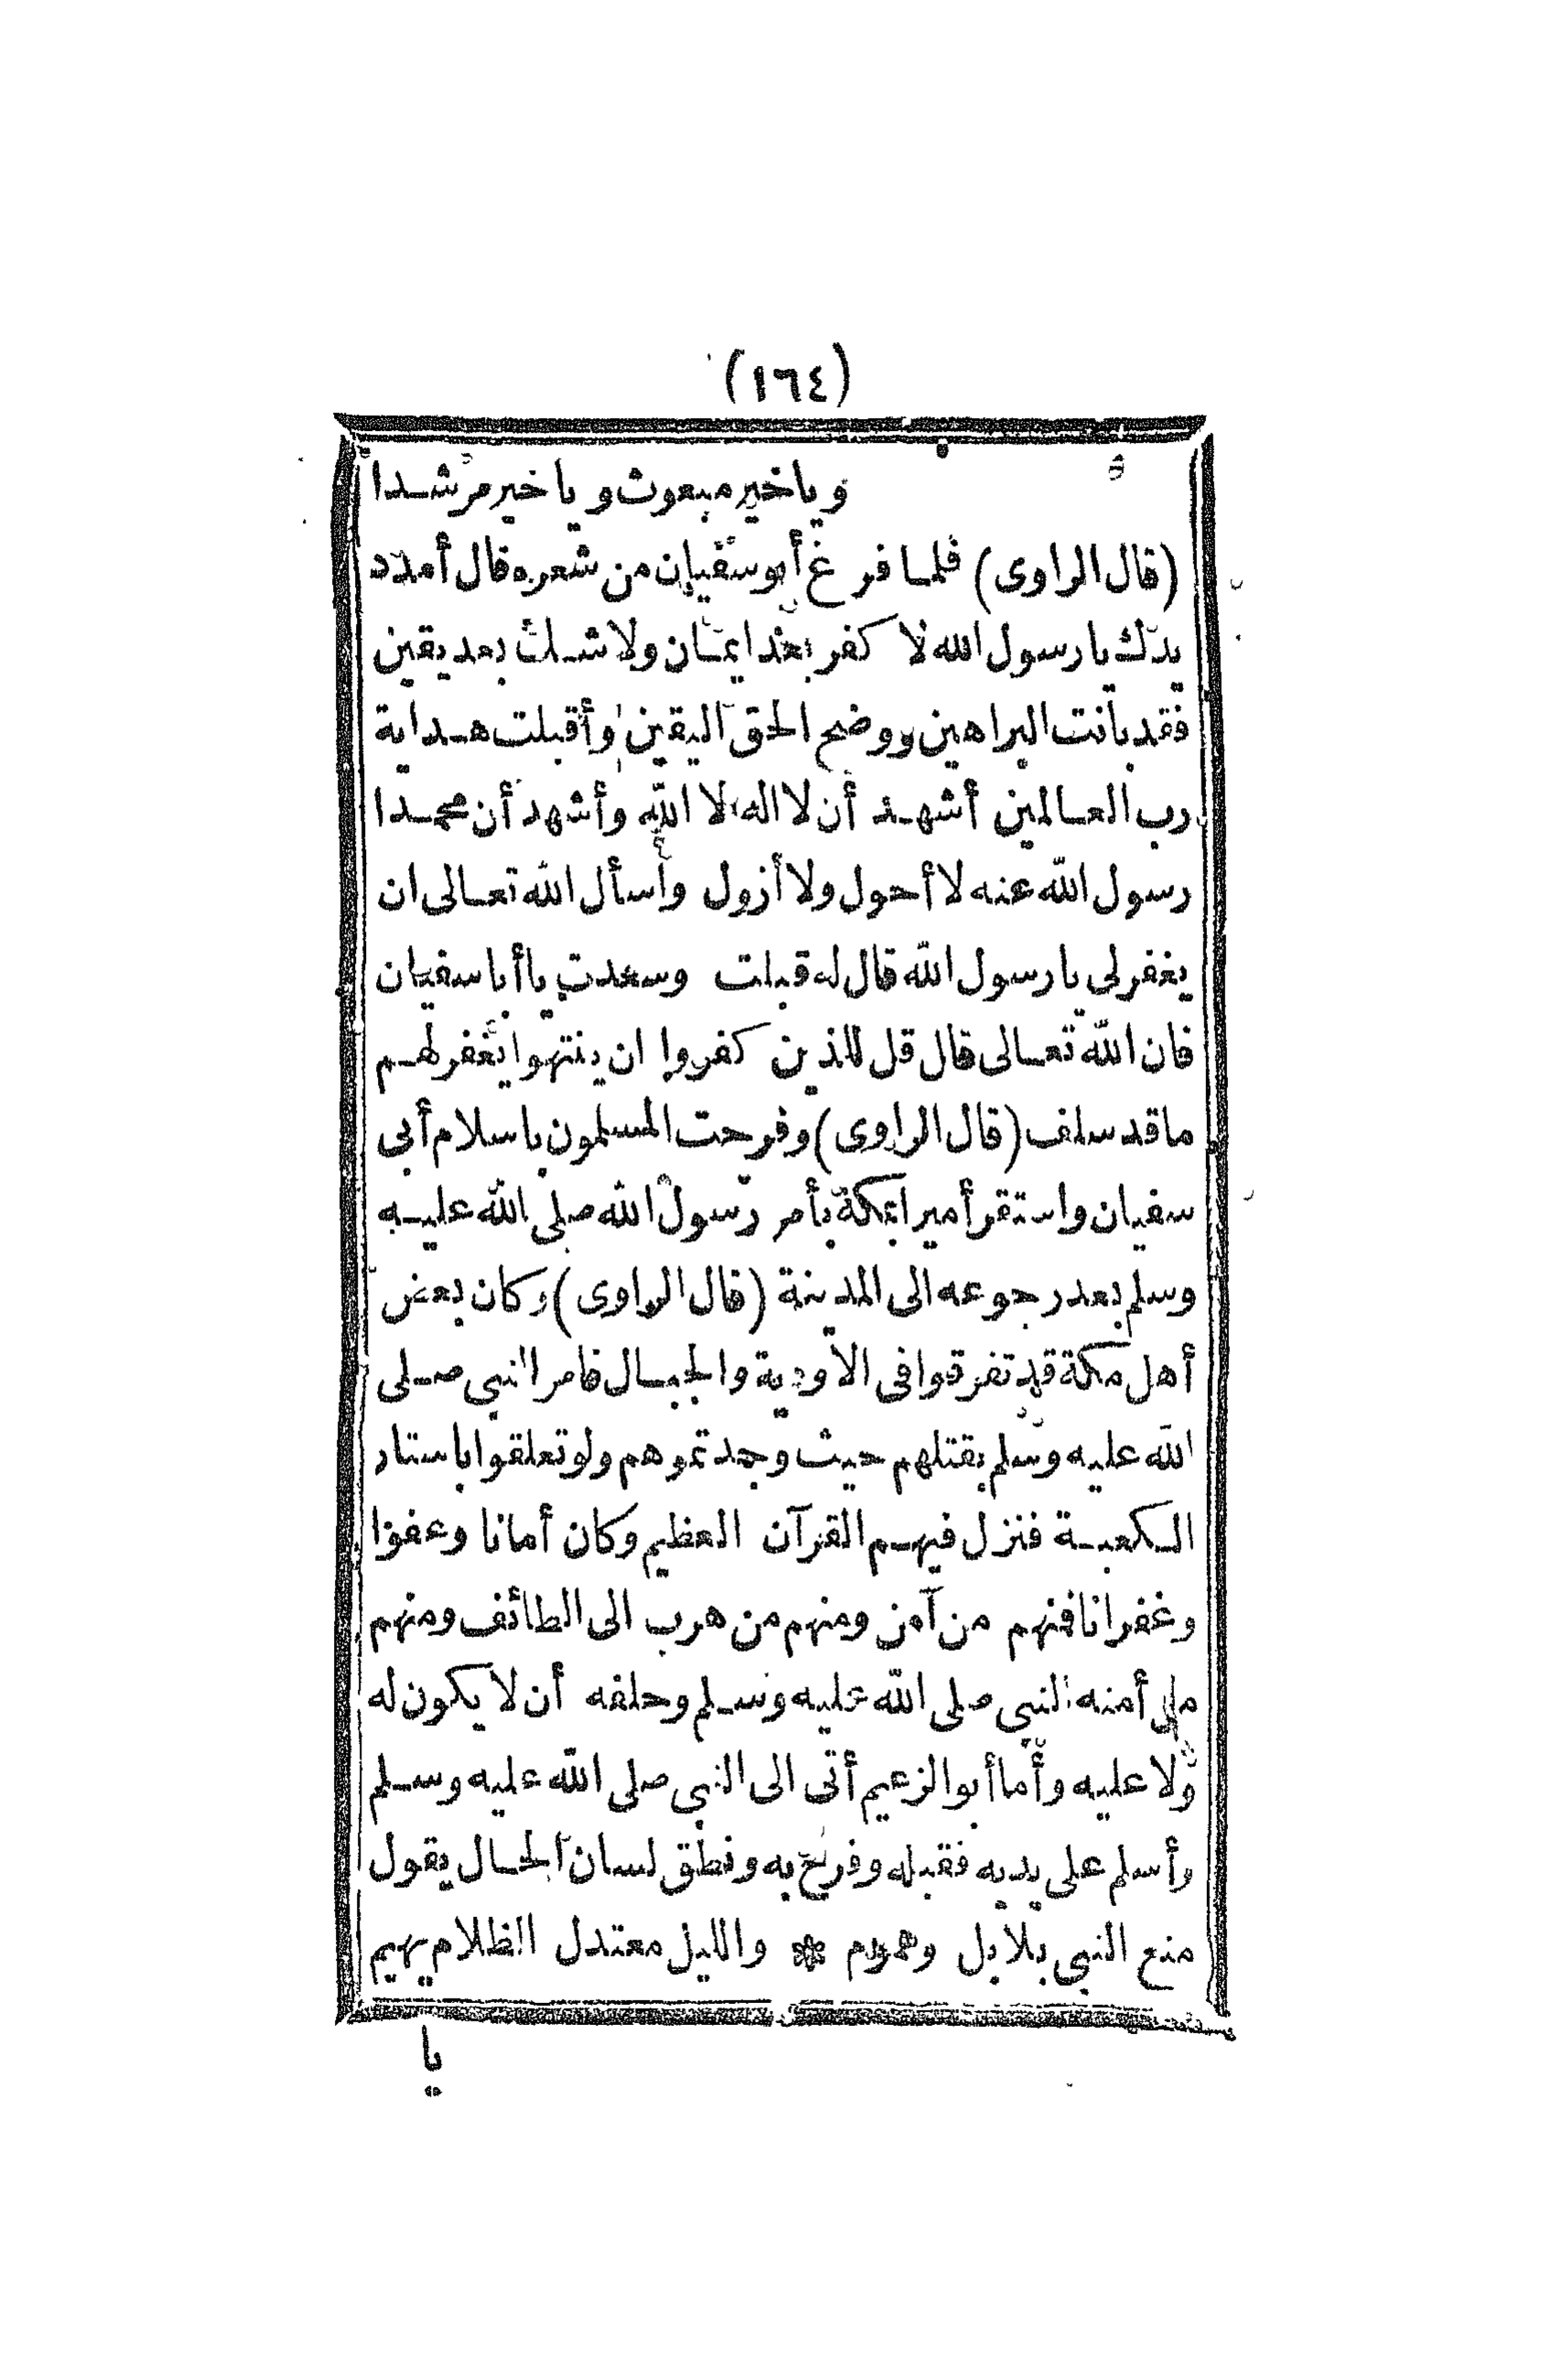 (١٦٤)
وياخير مبعوث ويا خير مرشدا
(قال الراوى) فلما فرغ أبوسفيان من شعره قال أمدد
يدك يا رسول الله لا كفر بعد ايمان ولا شك بعد يقين
فقد بانت البراهين ووضح الحق اليقين وأقبلت هداية
رب العالمين أشهد أن لا اله الا الله وأشهد أن محمدا
رسول الله عنه لا أحول ولا أزول وأسأل الله تعالى ان
يغفر لى يا رسول الله قال له قبلت وسعدت يا أبا سفيان
فان الله تعالى قال قل للذين كفروا ان ينتهوا يغفر لهم
ما قد سلف (قال الراوى) وفرحت المسلمون باسلام أبى
سفيان واستقر أميرا بمكة بأمر رسول الله صلى الله عليه
وسلم بعد رجوعه الى المدينة (قال الراوى) وكان بعض
أهل مكة قد تفرقوا فى الأودية والجبال فامر النبى صلى
الله عليه وسلم بقتلهم حيث وجدتموهم ولو تعلقوا باستار
الكعبة فنزل فيهم القرآن العظيم وكان أمانا وعفوا
وغفرانا فمنهم من آمن ومنهم من هرب الى الطائف ومنهم
من أمنه النبى صلى الله عليه وسلم وحلفه أن لا يكون له
ولا عليه وأما أبو الزعيم أتى الى النبى صلى الله عليه وسلم
وأسلم على يديه فقبله وفرح به ونطق لسان الحال يقول
منع النبى بلابل وهموم * والليل معتدل الظلام بهيم
يا